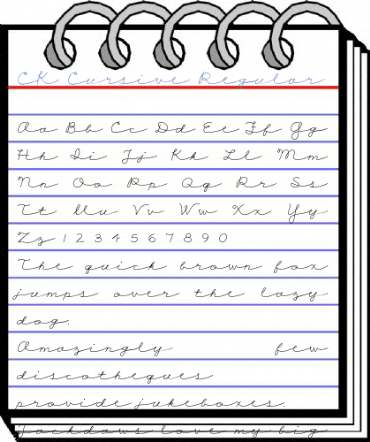 CK Cursive Regular
Aa Bb Cc Dd Ee Ff Gg
Hh Ii Jj Kk Ll Mm
Nn Oo Pp Qq Rr Ss
Tt Uu Vv Ww Xx Yy
Zz 1 2 3 4 5 6 7 8 9 0
The quick brown fox
jumps over the lazy
dog.
Amazingly few
discotheques
provide jukeboxes.
Jackdaws love my big